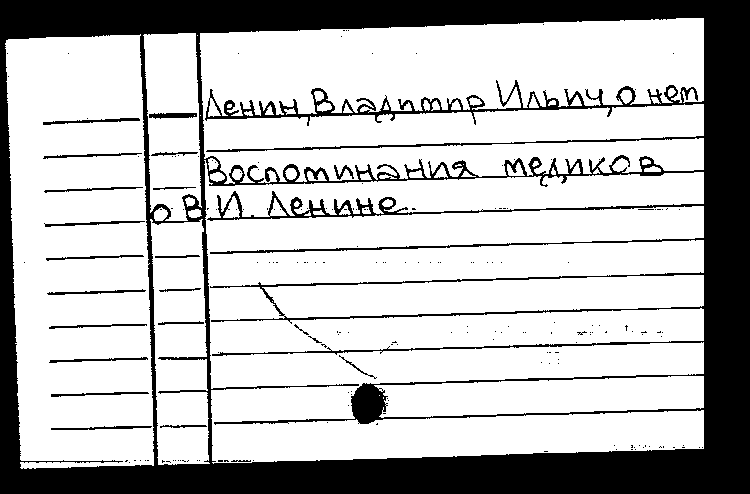 Ленин, Владимир Ильич, о нем
Воспоминания медиков
о В. И. Ленине.